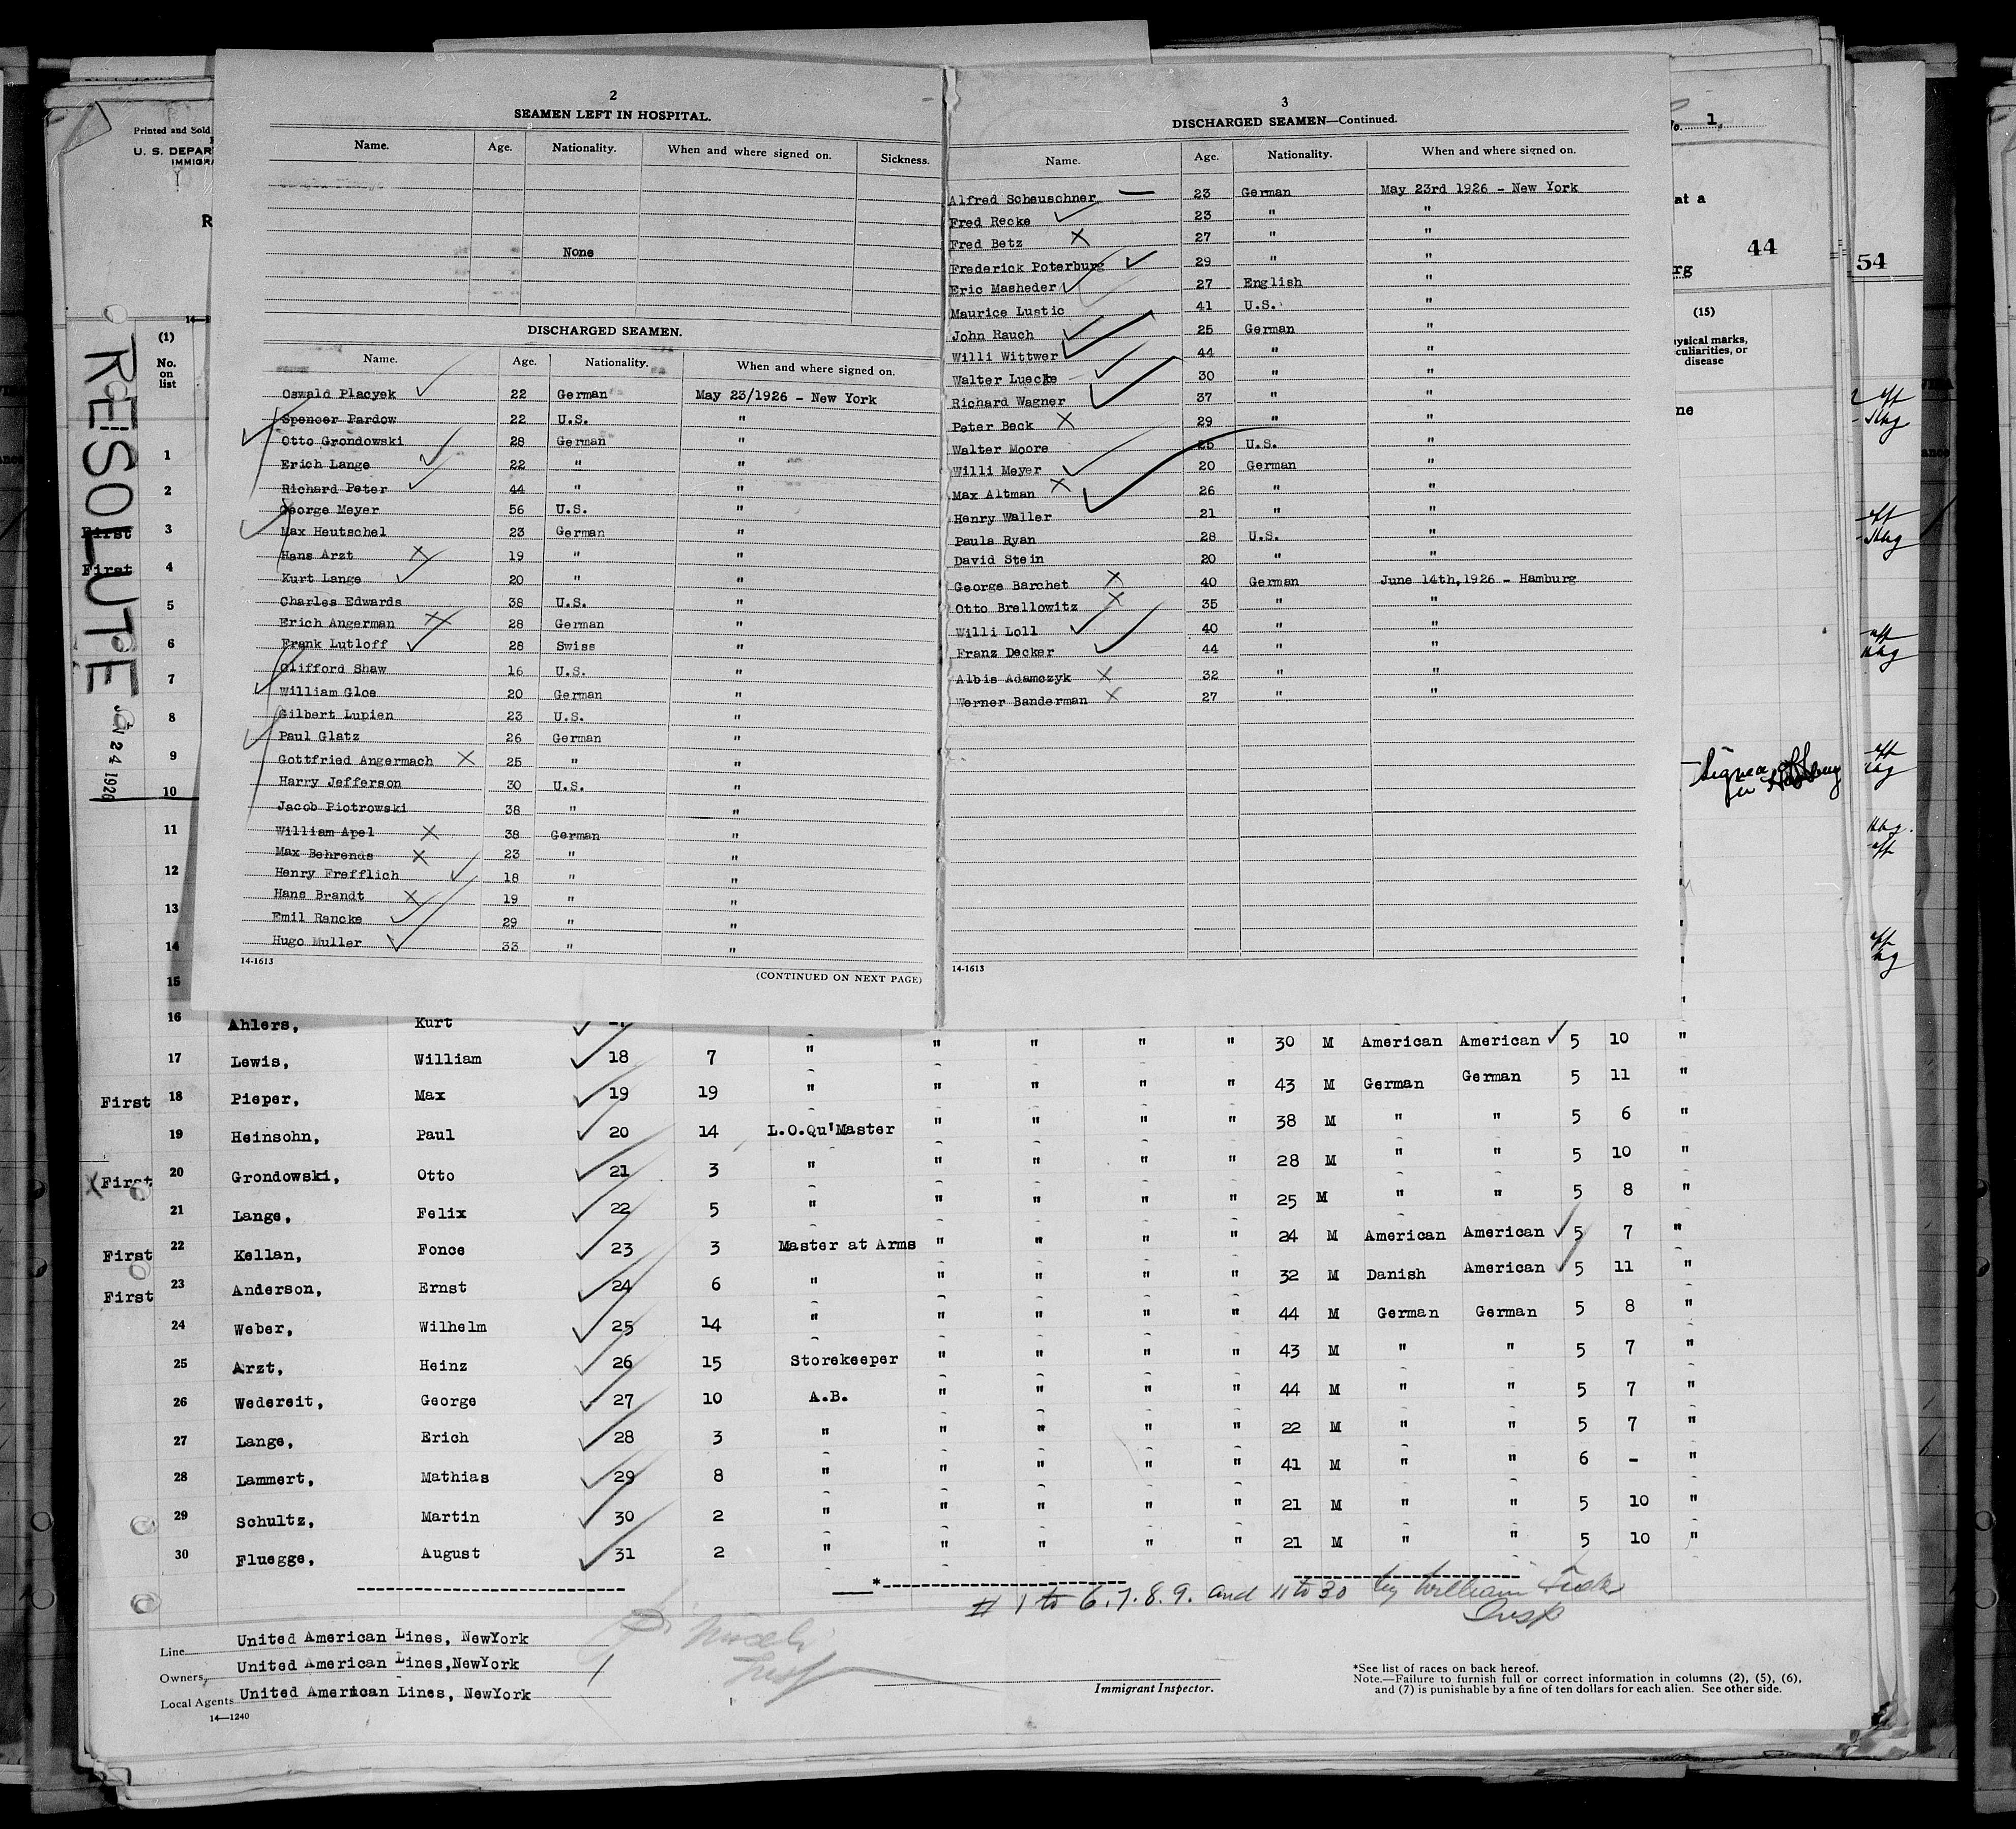 Printed and Sold
U. S. DEPAR
IMMIGRA
R
14—1
(1)
No.
on
list
RESOLUTE
JUN 24 1926
2
SEAMEN LEFT IN HOSPITAL.
Name. Age. Nationality. When and where signed on. Sickness.
None
DISCHARGED SEAMEN.
Name. Age. Nationality. When and where signed on.
Oswald Placyek 22 German May 23/1926 - New York
Spencer Pardow 22 U.S. "
Otto Grondowski 28 German "
Erich Lange 22 " "
Richard Peter 44 " "
George Meyer 56 U.S. "
Max Heutschel 23 German "
Hans Arzt 19 " "
Kurt Lange 20 " "
Charles Edwards 38 U.S. "
Erich Angerman 28 German "
Frank Lutloff 28 Swiss "
Clifford Shaw 16 U.S. "
William Gloe 20 German "
Gilbert Lupien 23 U.S. "
Paul Glatz 26 German "
Gottfried Angermach 25 " "
Harry Jefferson 30 U.S. "
Jacob Piotrowski 38 " "
William Apel 38 German "
Max Behrends 23 " "
Henry Frefflich 18 " "
Hans Brandt 19 " "
Emil Rancke 29 " "
Hugo Muller 33 " "
14-1613
(CONTINUED ON NEXT PAGE)
3
DISCHARGED SEAMEN—Continued.
Name. Age. Nationality. When and where signed on.
Alfred Scheuschner 23 German May 23rd 1926 - New York
Fred Recke 23 " "
Fred Betz 27 " "
Frederick Poterburg 29 " "
Eric Masheder 27 English "
Maurice Lustic 41 U.S. "
John Rauch 25 German "
Willi Wittwer 44 " "
Walter Luecke 30 " "
Richard Wagner 37 " "
Peter Beck 29 " "
Walter Moore 25 U.S. "
Willi Meyer 20 German "
Max Altman 26 " "
Henry Waller 21 " "
Paula Ryan 28 U.S. "
David Stein 20 " "
George Barchet 40 German June 14th,1926 - Hamburg
Otto Brellowitz 35 " "
Willi Loll 40 " "
Franz Decker 44 " "
Albis Adamczyk 32 " "
Werner Banderman 27 " "
14-1613
o. 1,
at a
44
rg
54
(15)
ysical marks,
culiarities, or
disease
ne
1
2
First 3
First 4
5
6
7
8
9
10
11
12
13
14
15
16 Ahlers, Kurt
17 Lewis, William 18 7 " " " " " 30 M American American 5 10 "
First 18 Pieper, Max 19 19 " " " " " 43 M German German 5 11 "
19 Heinsohn, Paul 20 14 L.O.Qu'Master " " " " 38 M " " 5 6 "
First 20 Grondowski, Otto 21 3 " " " " " 28 M " " 5 10 "
21 Lange, Felix 22 5 " " " " " 25 M " " 5 8 "
First 22 Kellan, Fonce 23 3 Master at Arms " " " " 24 M American American 5 7 "
First 23 Anderson, Ernst 24 6 " " " " " 32 M Danish American 5 11 "
24 Weber, Wilhelm 25 14 " " " " " 44 M German German 5 8 "
25 Arzt, Heinz 26 15 Storekeeper " " " " 43 M " " 5 7 "
26 Wedereit, George 27 10 A.B. " " " " 44 M " " 5 7 "
27 Lange, Erich 28 3 " " " " " 22 M " " 5 7 "
28 Lammert, Mathias 29 8 " " " " " 41 M " " 6 - "
29 Schultz, Martin 30 2 " " " " " 21 M " " 5 10 "
30 Fluegge, August 31 2 " " " " " 21 M " " 5 10 "
# 1 to 6. 7. 8. 9. and 11 to 30 by William
Insp
Line United American Lines, NewYork
Owners, United American Lines,NewYork
Local Agents United American Lines, NewYork
14—1240
Insp
Immigrant Inspector.
*See list of races on back hereof.
Note.—Failure to furnish full or correct information in columns (2), (5), (6),
and (7) is punishable by a fine of ten dollars for each alien. See other side.